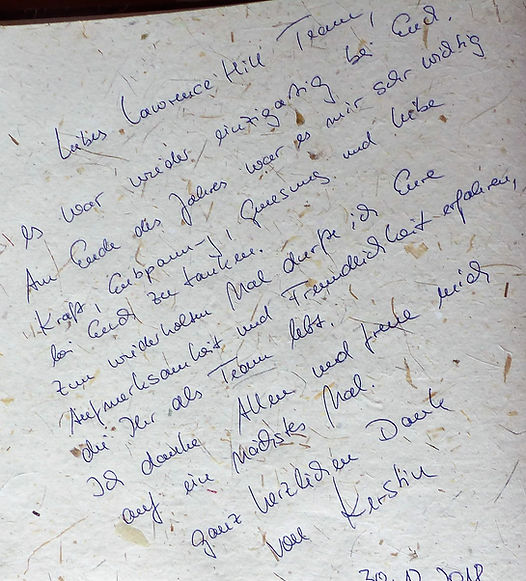 Liebes Lawrence Hill Team,
es war wieder einzigartig bei Euch.
Am Ende des Jahres war es mir sehr wichtig
Kraft, Entspannung, Genesung und Liebe
bei Euch zu tanken.
Zum wiederholten Mal durfte ich Eure
Aufmerksamkeit und Freundlichkeit erfahren,
die Ihr als Team lebt.
Ich danke Allen und freue mich
auf ein nächstes Mal.
ganz herzlichen Dank
von Kerstin
30.12.2018